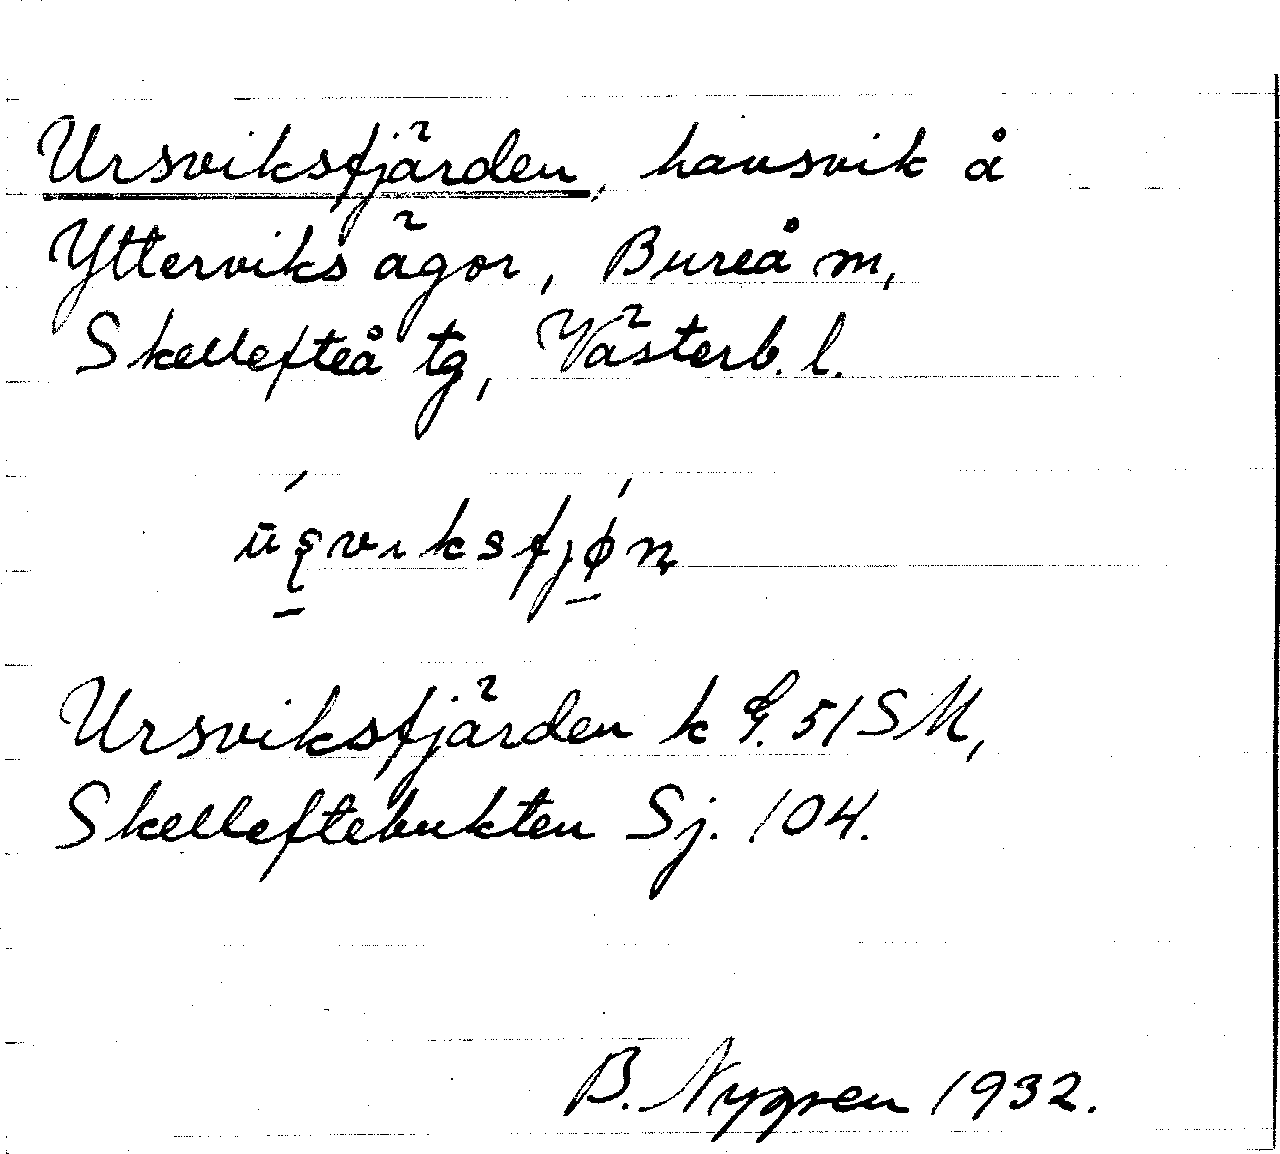 Ursviksfjärden, havsvik å
Ytterviks ägor, Bureå m,
Skellefteå tg, Västerb. l.
Ursviksfjärden k G. 51 SM,
Skelleftebukten Sj. 104.
B. Nygren 1932.